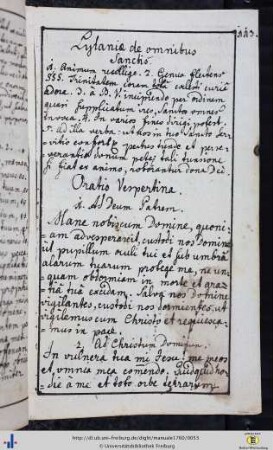 113.
Lytaniæ de omnibus
Sanctis.
1. Animum recollige. 2. Genua flectens
SSS. Trinitatem coram tota cælesti curia
adora. 3. à B. V. incipiendo per ordinem
quasi supplicatum ires, Sanctos omnes
invoca. 4. In varios fines dirigi potest.
5. ad illa verba: ut nos in tuo Sancto ser-
vitio confortare
severantiæ donum petes tali
si fiat ex animo, roborantur
Oratio Vespertina.
1. Ad Deum Patrem.
Mane nobiscum Domine, quoni-
am advesperascit, custodi nos Domine
ut pupillam oculi tui et sub umbra
alarum tuarum protege me, ne un-
quam obdormiam in morte et gra-
tia tua excidam. Salva nos Domine
vigilantes, custodi nos dormientes, ut
vigilemus cum Christo et requiesca-
mus in pace.
2. Ad Christum Dominum.
In vulnera tua mi Jesu! me meos
et omnia mea comendo. Quidquid ho-
die à me et toto orbe terrarum
http://dl.ub.uni-freiburg.de/diglit/manuale1760/0053
© Universitätsbibliothek Freiburg